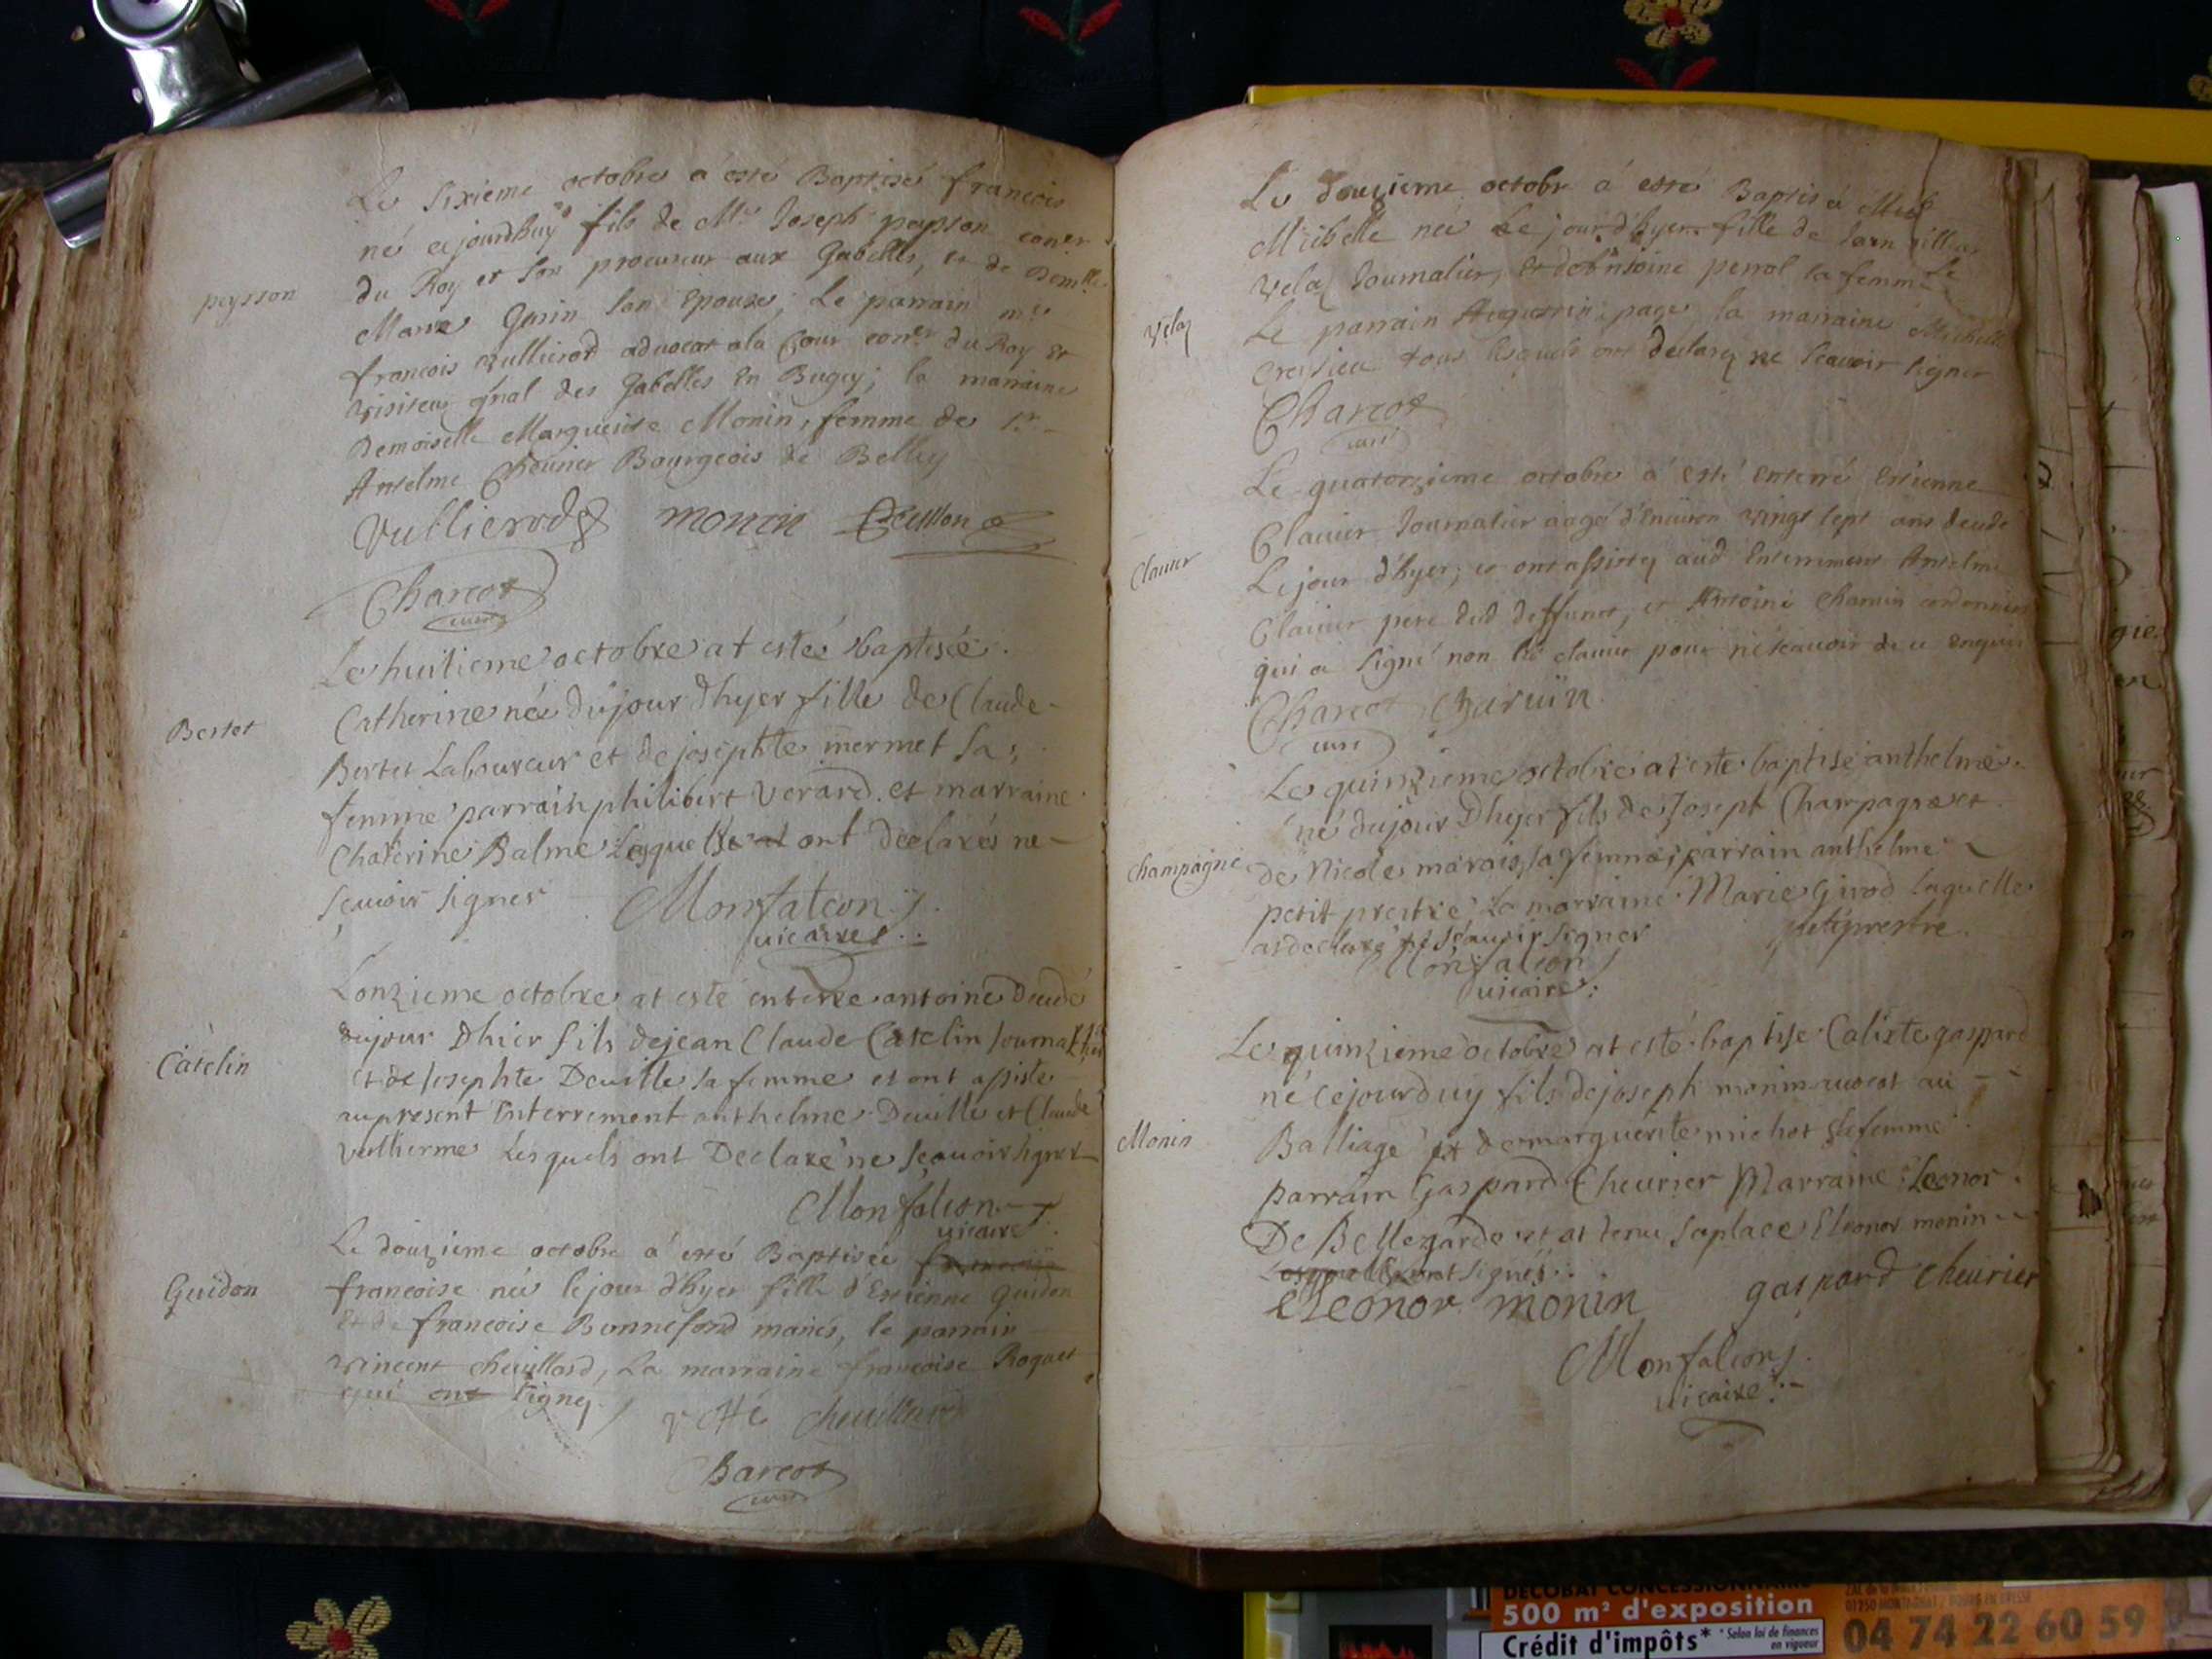 peysson
Le Sixieme octobre a esté Baptisé francois
né cejourdhuy fils de Mr Joseph peysson coner
du Roy et son procureur aux Gabelles, et de Demlle
Marie Guerin son Epouse, Le parrain mre
francois Vullierod advocat ala Cour coner du Roy et
visiteur gnal des Gabelles En Bugey; la marraine
Demoiselle Marguerite Monin, femme de Sr
Antelme Cheurier Bourgeois de Belley
Vullierod monin Peysson
Charcot
curé
Bertet
Le huitieme octobre at estée baptisée
Catherine née dujour dhyer fille de Claude
Bertet Laboureur et de josephte mermet sa
femme parrain philibert Verard. et marraine
Chaterine Balme Lesquels ont declarés ne
scavoir signer Monfalcon
uicaire
Catelin
Lonzieme octobre at esté enterre antoine Decedé
dujour Dhier fils dejean Claude Catelin Journallier
et de Josephte Deville sa femme et ont assisté
aupresent Enterrement anthelme Deville et Claude
Vullierme Lesquels ont Declaré ne scauoir signer
Monfalcon
uicaire
Guidon
Le douzieme octobre a esté Baptisée
francoise née le jour d'hyer fille d'Estienne Guidon
Et de francoise Bonnefond mariés, le parrain
vincent cheuillard, La marraine francoise Roquet
qui ont signez
cheuillard
Charcot
curé
Velaz
Le douzieme octobre a esté Baptisé
Michelle née Le jour d'hyer fille de
Velaz Journalier, Et d'Antoine perrol sa femme
Le parrain Augustin page, la marraine Michelle
Cressieu tous lesquels ont declarez ne scauoir signer
Charcot
curé
Clauier
Le quatorzieme octobre a esté enterré Estienne
Clauier Journalier aagé d'Enuiron vingt sept ans decedé
Le jour d'hyer; et ont assistez aud Enterrement Antelme
Clauier pere dud deffunct, et Antoine Charuin cordonnier
qui a signé non led clauier pour ne scauoir de ce enquis
Charcot Charuin
curé
Champagne
Le quinzieme octobre at esté baptisé anthelme
né dujour Dhyer fils de Joseph Champagne et
de Nicole marais sa femme, parrain anthelme
petit prestre La marraine Marie Girod laquelle
at declaré ne scauoir signer petitprestre
Monfalcon
uicaire
Monin
Le quinzieme octobre at esté baptise Calixte gaspard
né cejourduy fils dejoseph monin auocat au
Balliage et de marguerite michot sa femme
parrain Gaspard Cheurier Marraine Leonor
De Bellegarde et at tenu saplace Eleonor monin
Lesquells ont signés
eLeonor monin gaspard cheurier
Monfalcon
uicaire
DECOBAT CONCESSIONNAIRE
500 m² d'exposition
Crédit d'impôts* *Selon loi de finances
en vigueur
04 74 22 60 59